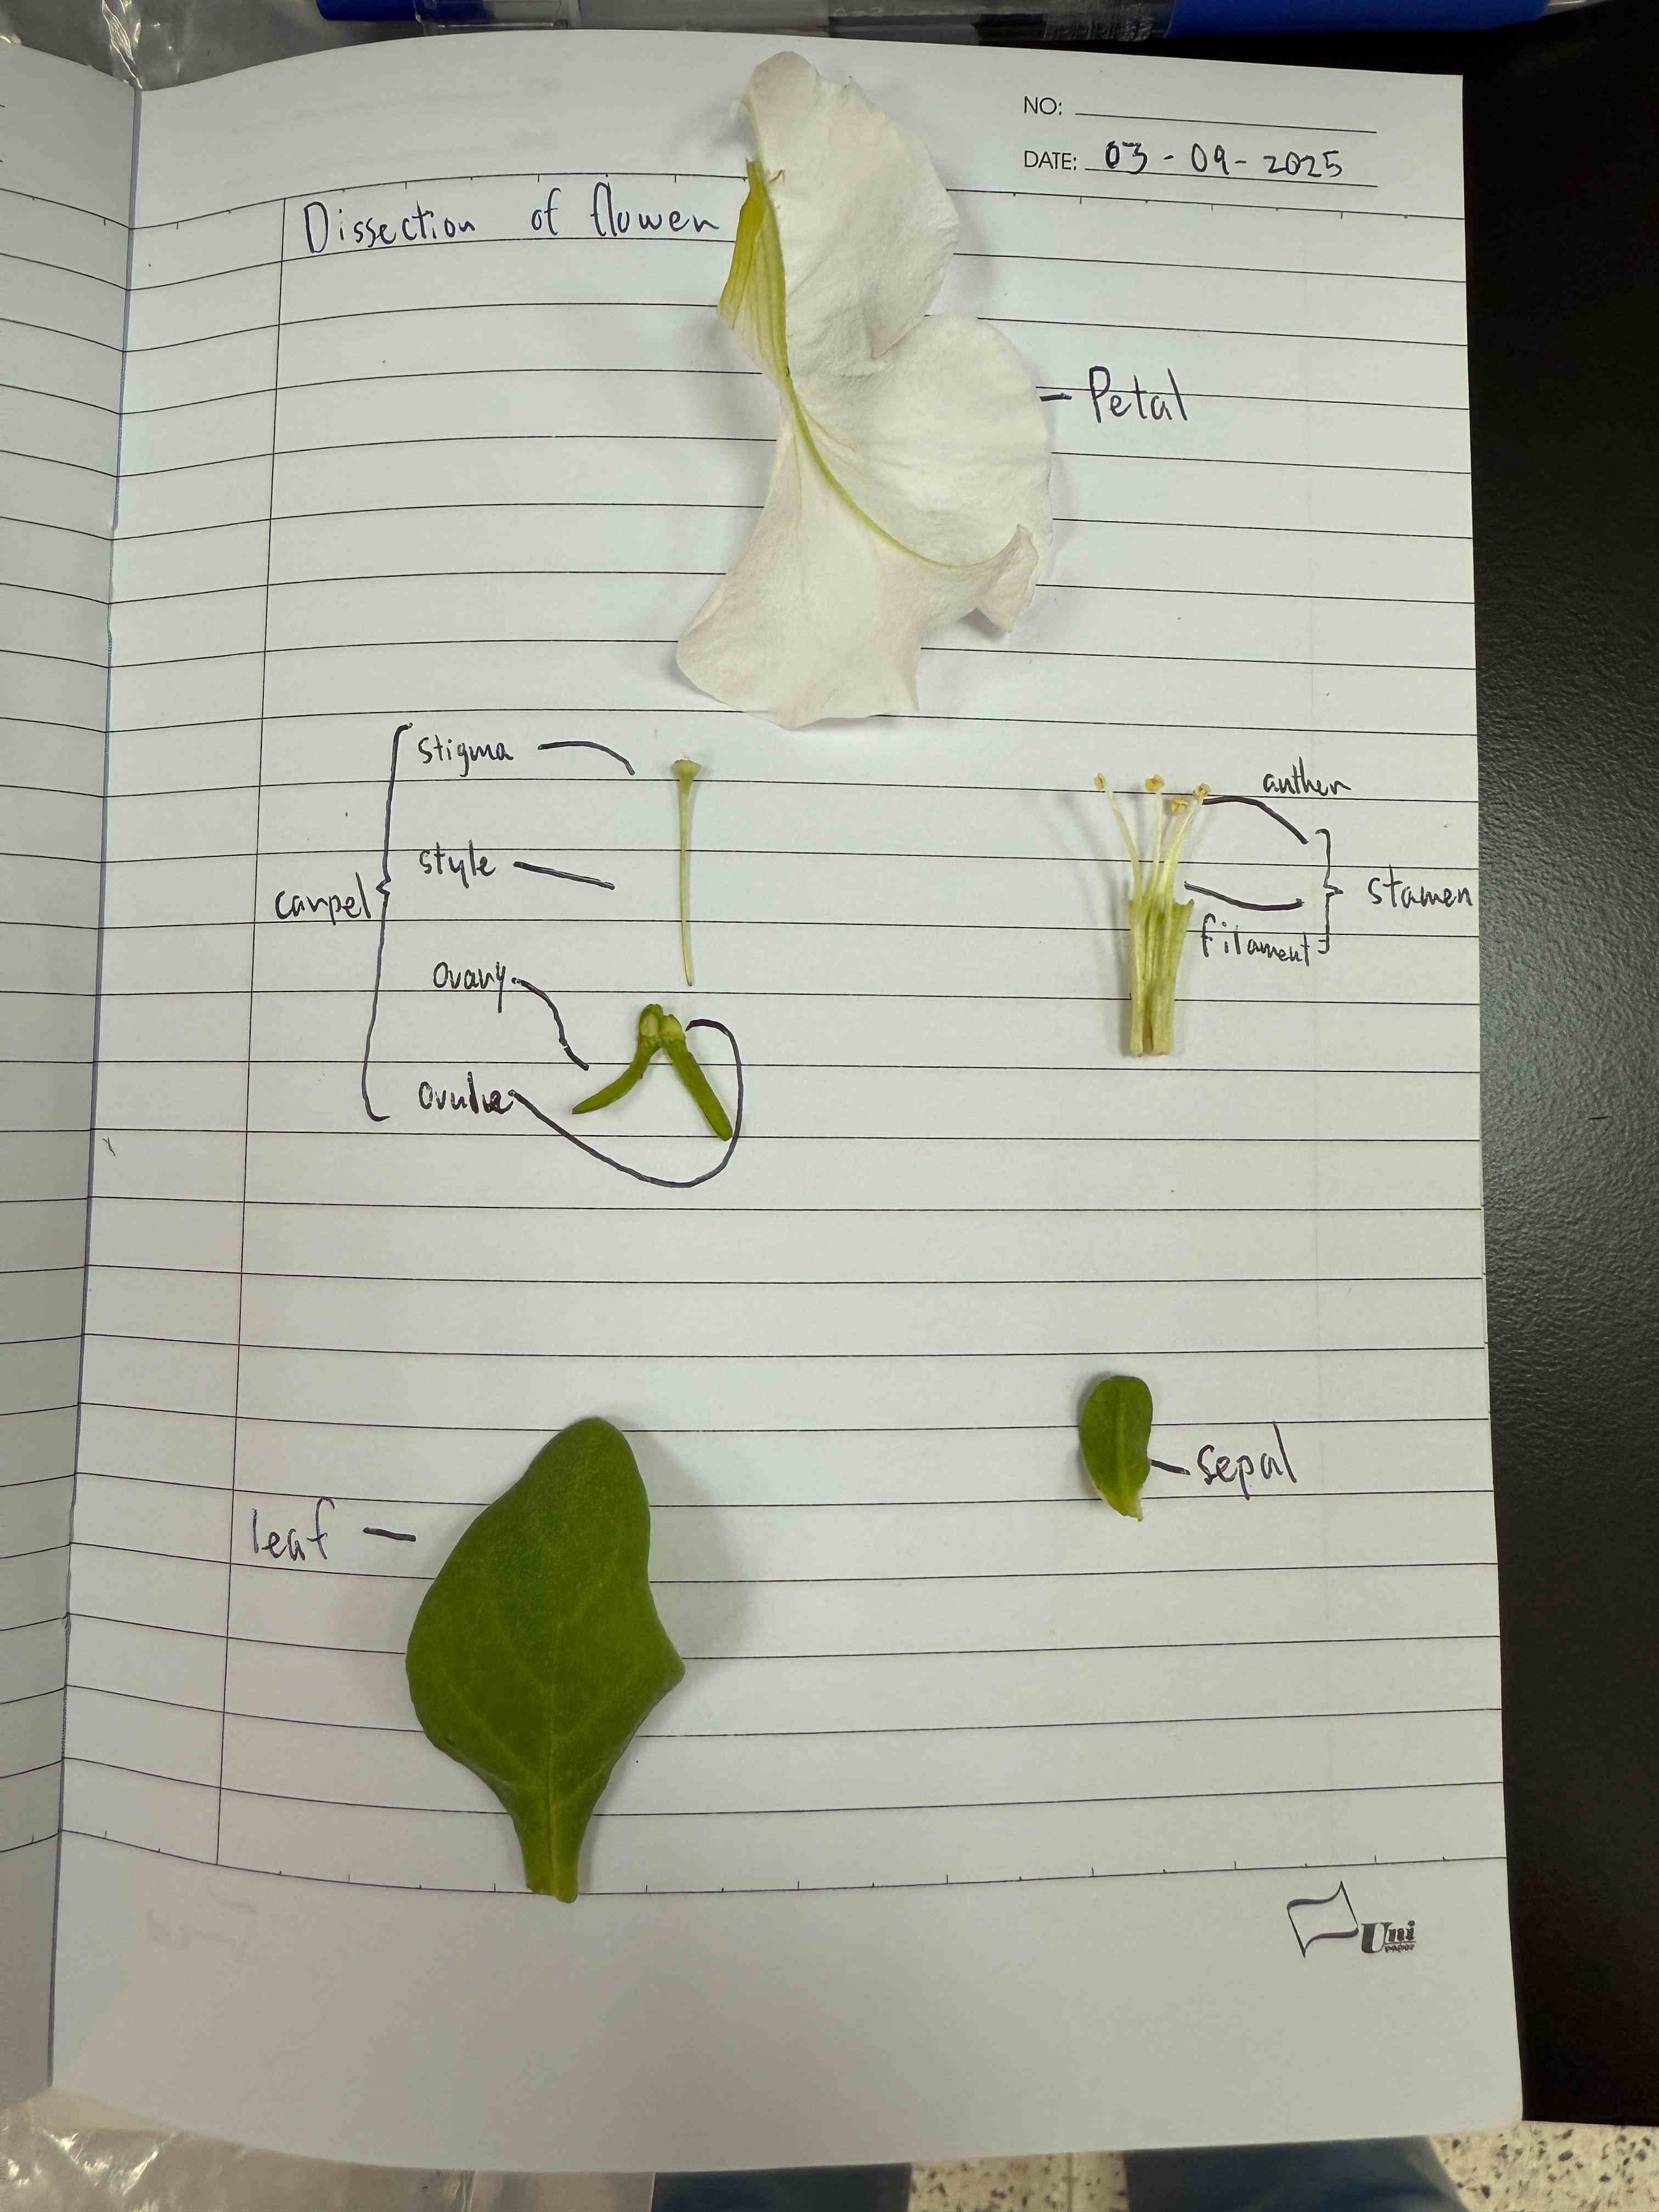 NO:
DATE: 03-09-2025
Dissection of flower
Petal
stigma
anther
style
carpel
stamen
filament
ovary
ovule
sepal
leaf
Uni
PAPER